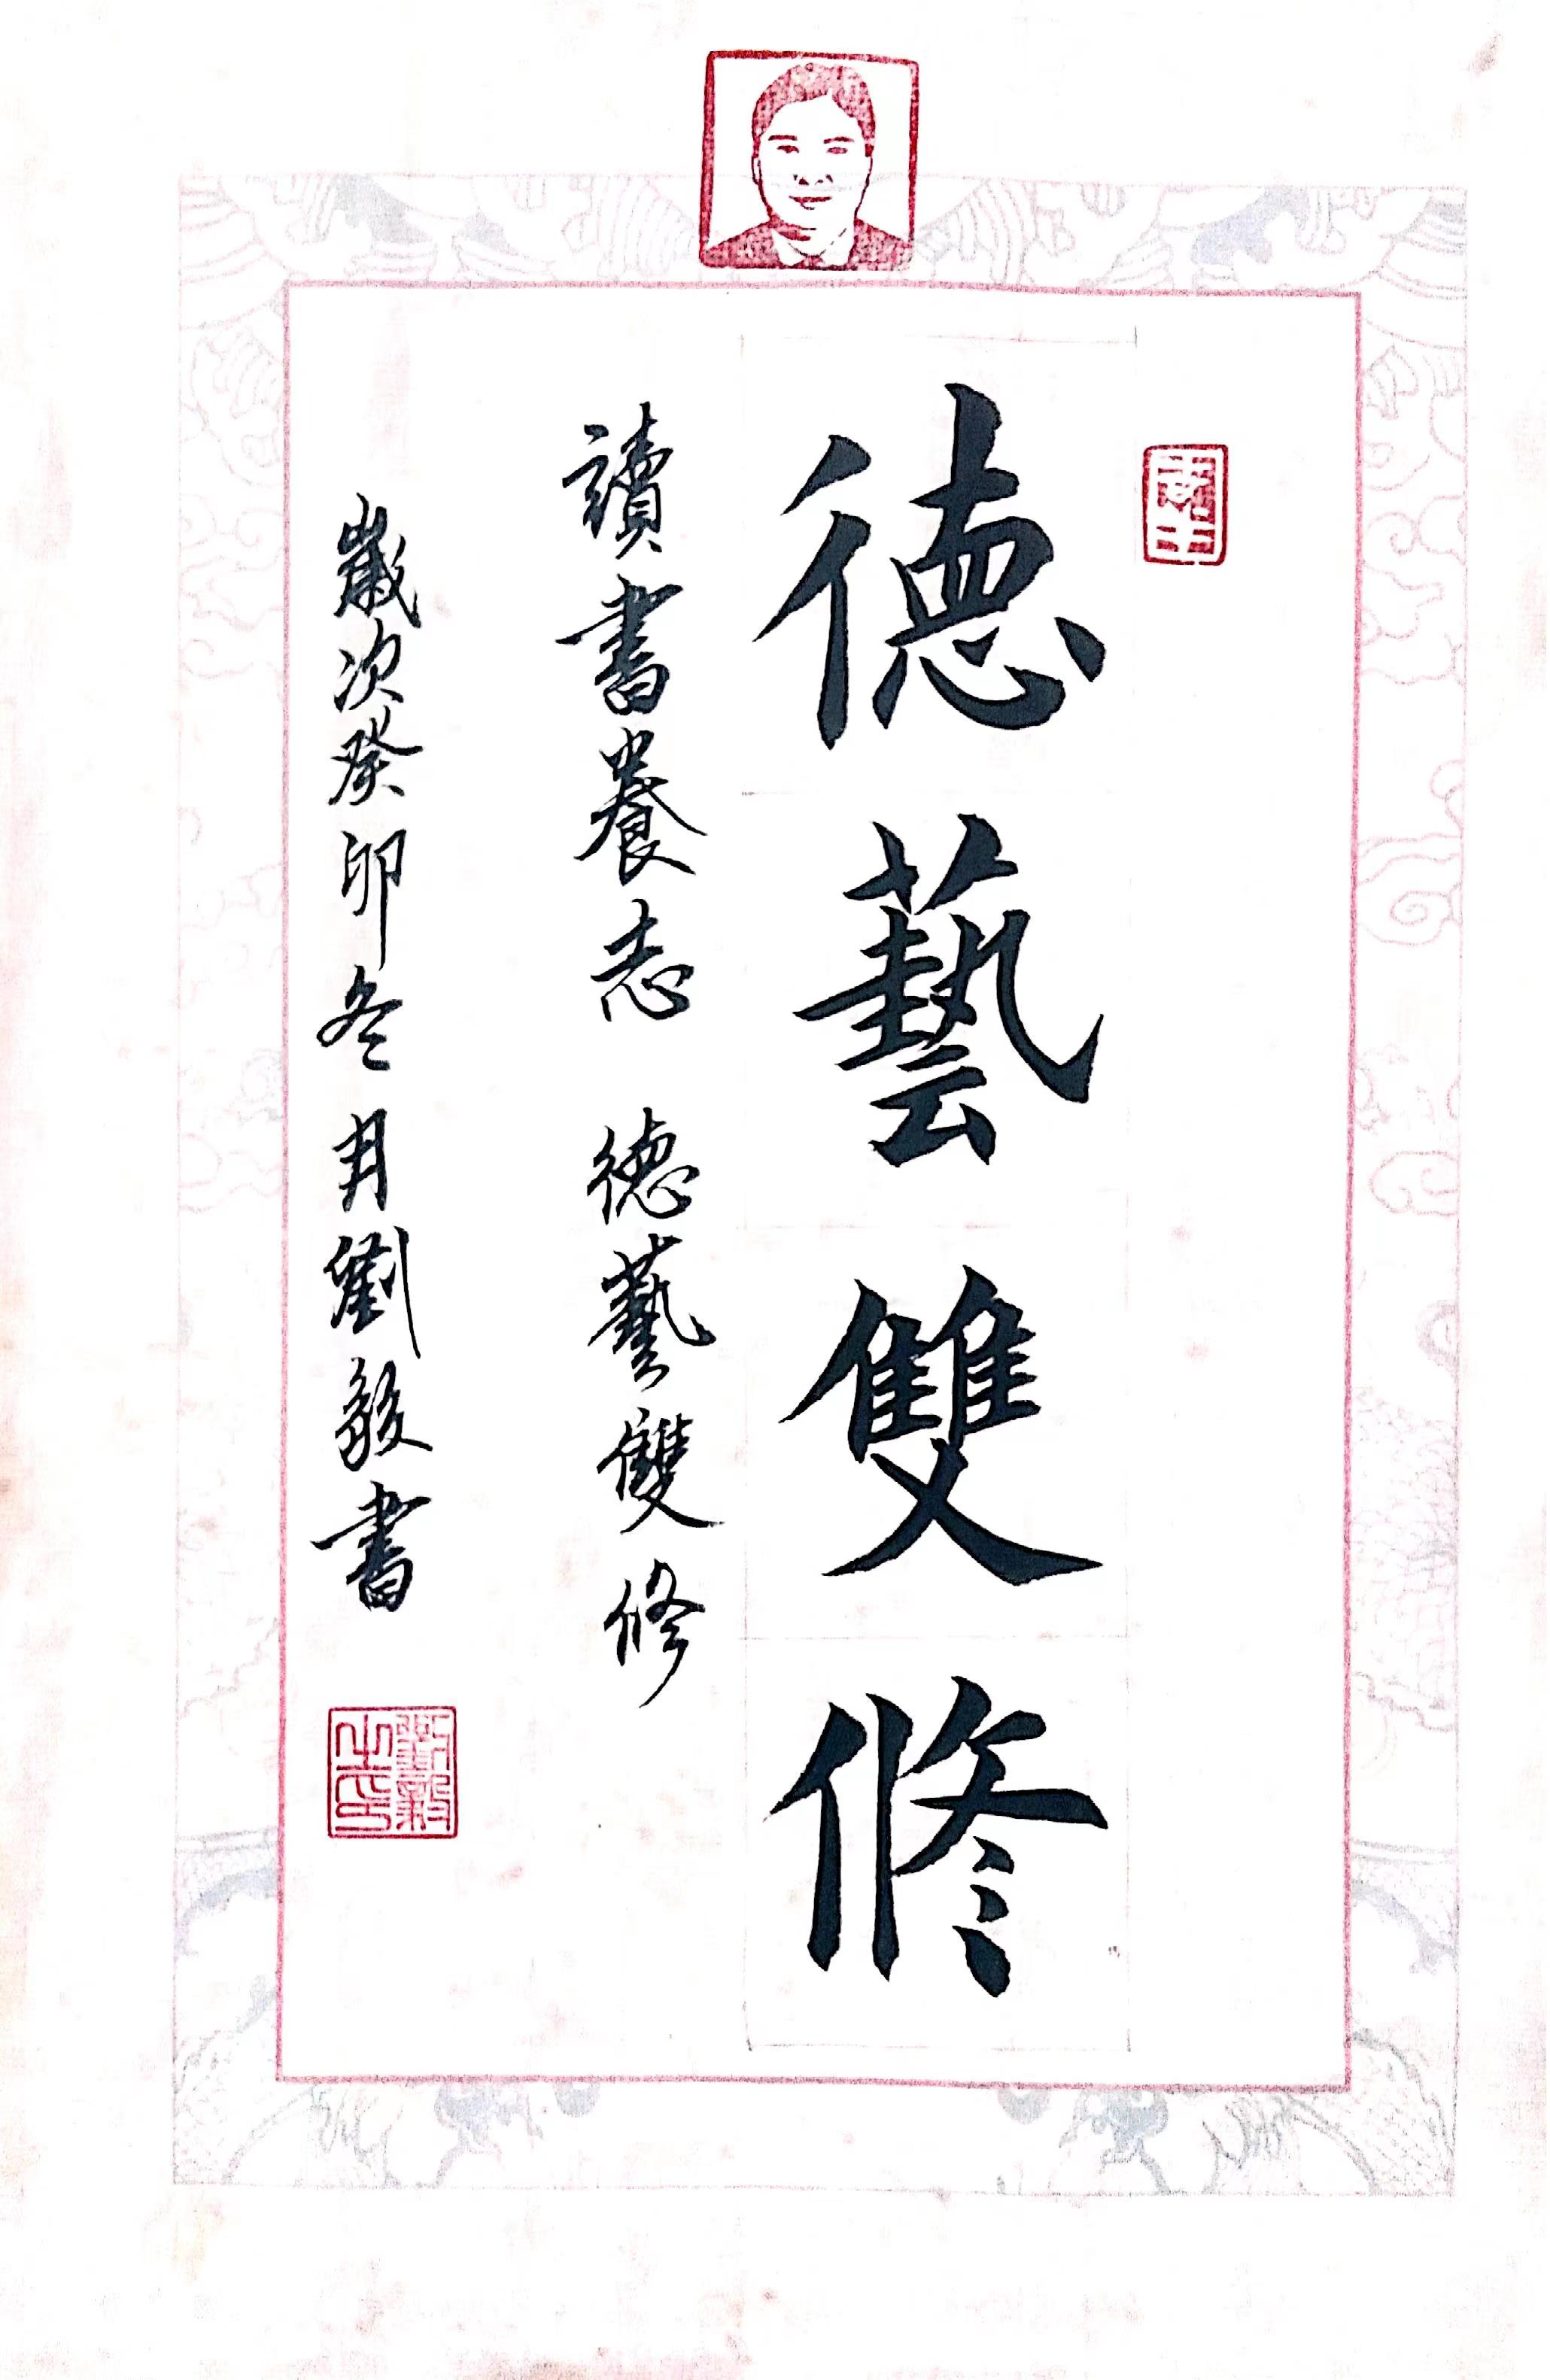 德藝雙修
讀書養志 德藝雙修
歲次癸卯冬月劉毅書
劉毅之印